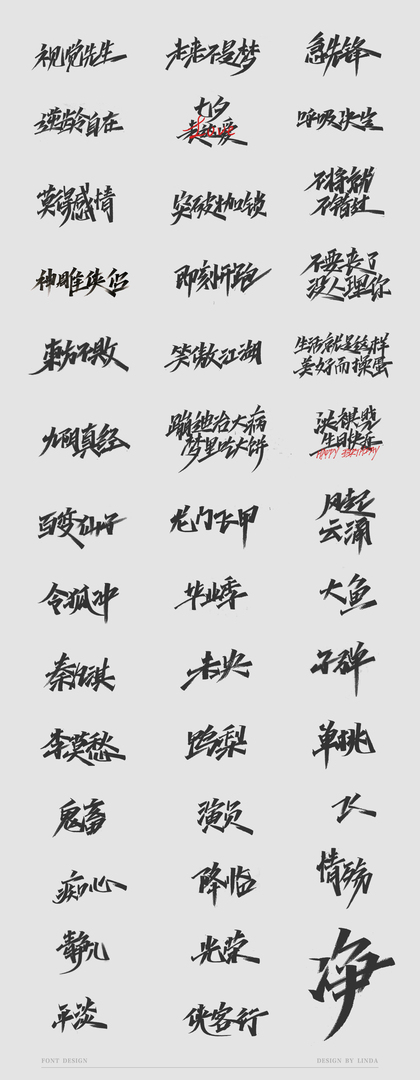 视觉先生
未来不是梦
急先锋
逆龄自在
七夕
趁热爱
呼吸决定
莫得感情
突破枷锁
不将就
不错过
神雕侠侣
即刻开跑
不要丧了
没人理你
东方不败
笑傲江湖
生活就是这样
美好而操蛋
九阴真经
蹦迪治大病
梦里吃大饼
生日快乐
HAPPY BIRTHDAY
百变仙子
龙门飞甲
风起
云涌
令狐冲
毕业季
大鱼
未央
子弹
李莫愁
鸭梨
单挑
鬼畜
演员
痴心
降临
情殇
静儿
光荣
净
平淡
侠客行
FONT DESIGN
DESIGN BY LINDA